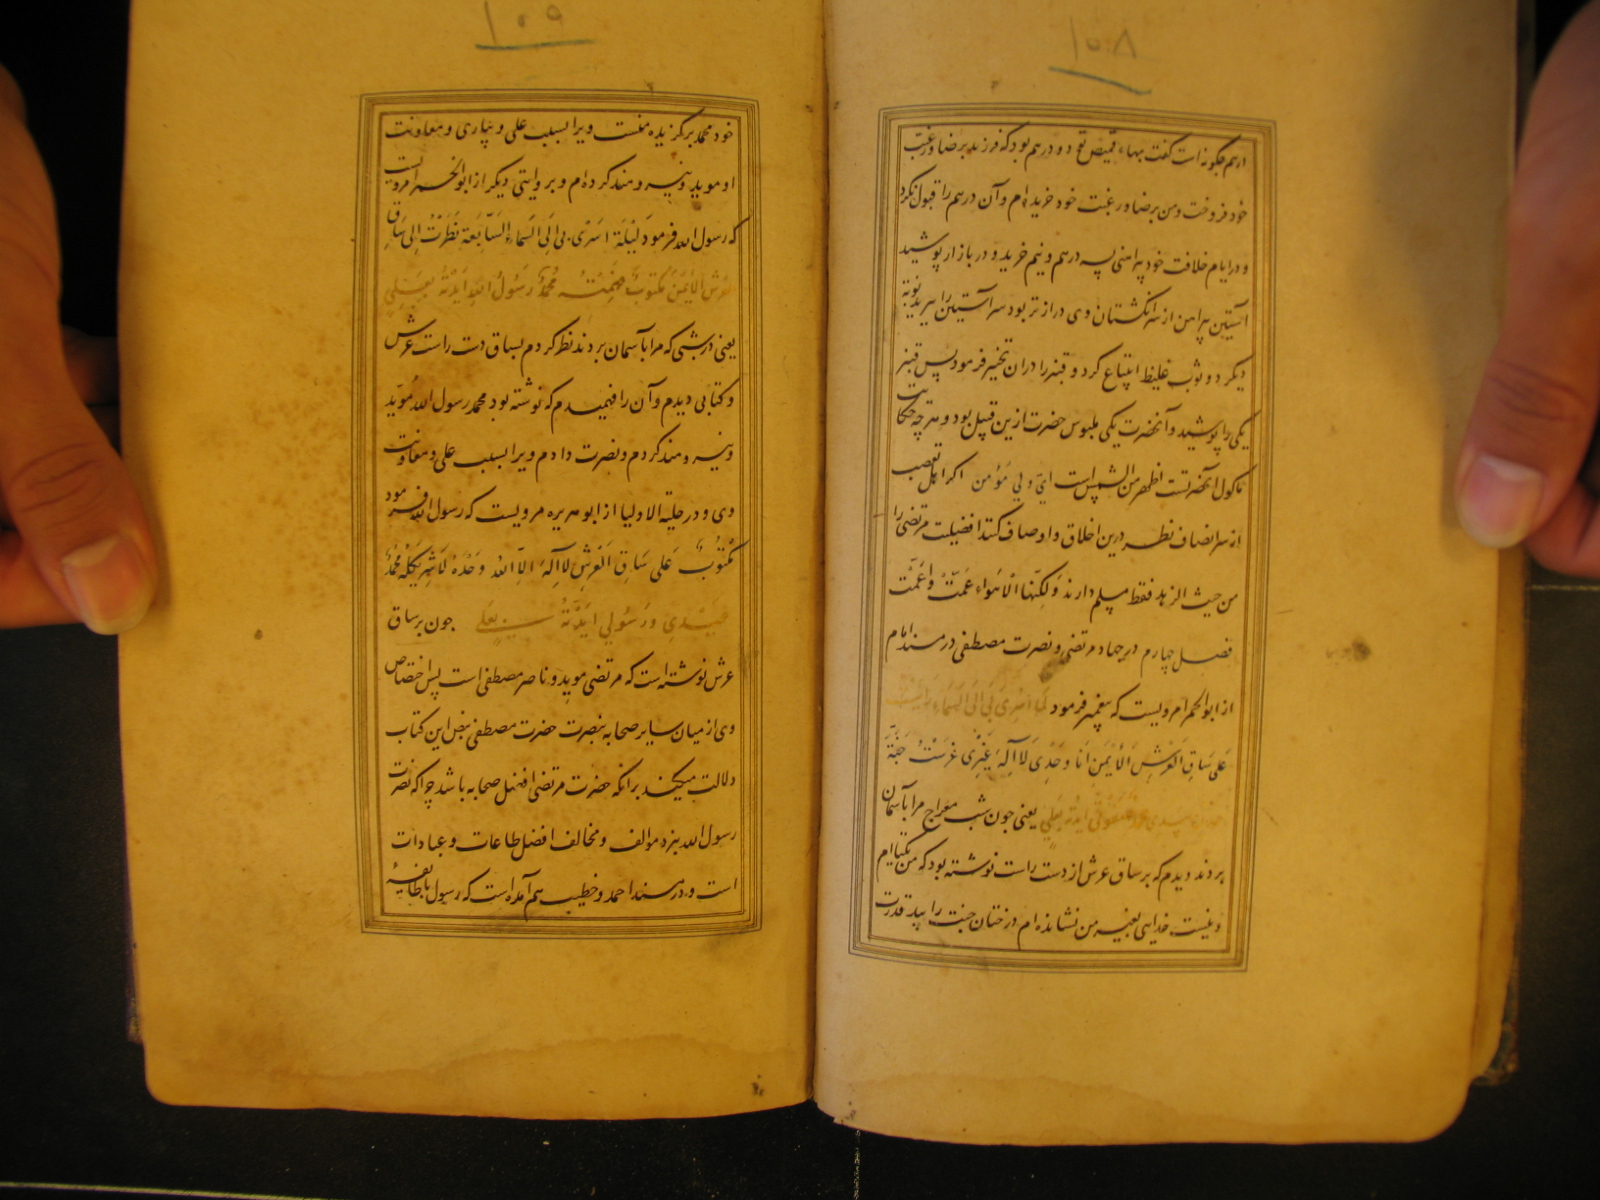 ۱۰۸
درهم چگونه است گفت بهاء قمیص تو دو درهم بود که فرزند برضا و رغبت
خود فروخت و من برضا و رغبت خود خریده ام و آن درهم را قبول نکرد
و در ایام خلافت خود پیراهنی بسه درهم و نیم خرید و در بازار پوشید
آستین پیراهن از سر انگشتان وی درازتر بود سر آستین را ببرید نوبه
دیگر دو ثوب غلیظ ابتیاع کرد و قنبر را در آن تخییر فرمود پس قنبر
یکی را پوشید و آنحضرت یکی ملبوس حضرت ازین قبیل بود و هر چه حکایت
ماکول آنحضرتست اظهر من الشمس است ای ولی مؤمن اگر اهل تعصب
از سر انصاف نظر درین اخلاق و اوصاف کنند افضیلت مرتضی را
من حیث الزهد فقط مسلم دارند ولکنها الاهواء عمت واعمت
فصل چهارم در جهاد مرتضی و نصرت مصطفی در مسند امام
از ابو الحمرا مرویست که پیغمبر فرمود لما اسری بی الی السماء رایت
علی ساق العرش الایمن انا وحدی لا اله غیری غرست جنة
یعنی چون شب معراج مرا بآسمان
بردند دیدم که بر ساق عرش از دست راست نوشته بود که من یکتاام
و نیست خدایی بغیر من نشانده ام درختان جنت را بید قدرت
۱۰۹
خود محمد برگزیده منست ویرا بسبب علی و یاری و معاونت
او موید و نیرومند کرده ام و بروایتی دیگر از ابو الحمرا مرویست
که رسول الله فرمود لیلة اسری بی الی السماء السابعة نظرت الی ساق
العرش الایمن مکتوب فهمته محمد رسول الله ایدته بعلی
یعنی در شبی که مرا بآسمان بردند نظر کردم بساق دست راست عرش
و کتابی دیدم و آن را فهمیدم که نوشته بود محمد رسول الله مؤید
و نیرومند کردم و نصرت دادم ویرا بسبب علی و معاونت
وی و در حلیة الاولیا از ابو هریره مرویست که رسول الله فرمود
مکتوب علی ساق العرش لا اله الا الله وحده لا شریک له محمد
عبدی ورسولی ایدته بعلی چون بر ساق
عرش نوشته است که مرتضی موید و ناصر مصطفی است پس اختصاص
وی از میان سایر صحابه بنصرت حضرت مصطفی بنص این کتاب
دلالت میکند بر آنکه حضرت مرتضی افضل صحابه باشد چرا که نصرت
رسول الله بنزد موالف و مخالف افضل طاعات و عبادات
است و در مسند احمد و خطیب هم آمده است که رسول با طایفهٔ